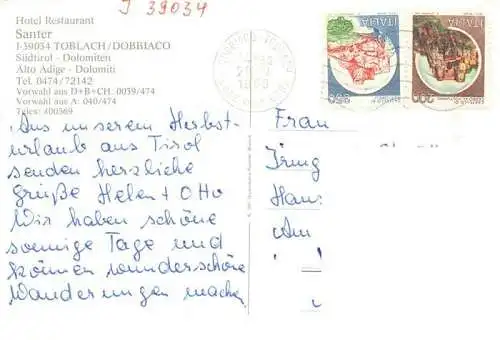 J 39034
Hotel Restaurant
Santer
I-39034 TOBLACH/DOBBIACO
Südtirol - Dolomiten
Alto Adige - Dolomiti
Tel. 0474/72142
Vorwahl aus D+B+CH: 0039/474
Vorwahl aus A: 040/474
Telex: 400569
Aus unserem Herbst-
urlaub aus Tirol
senden herzliche
Grüße Helen + Otto
Wir haben schöne
sonnige Tage und
können wunderschöne
Wanderungen machen
ITALIA
650
ITALIA
200
Frau
Irmg
Hans
Am